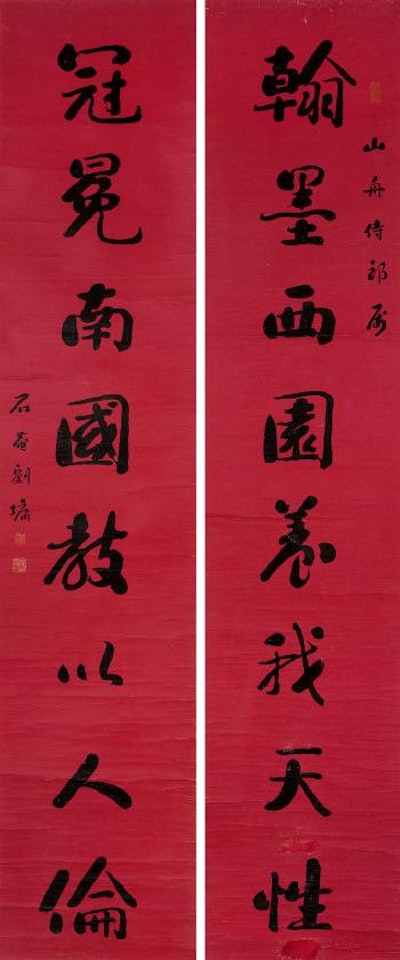 山舟侍郎屬
翰墨西園養我天性
冠冕南國教以人倫
石菴劉墉